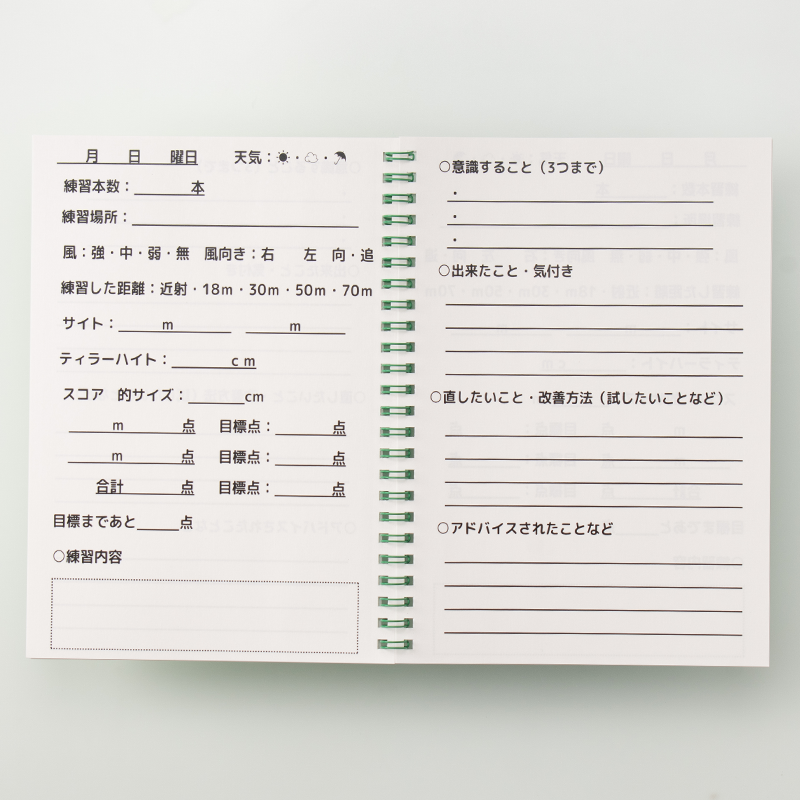 月　日　曜日　天気：☀・☁・☂
練習本数：＿＿＿＿本
練習場所：＿＿＿＿＿＿＿＿
風：強・中・弱・無　風向き：右　左　向・追
練習した距離：近射・18m・30m・50m・70m
サイト：＿＿＿m＿＿＿　＿＿＿m＿＿＿
ティラーハイト：＿＿＿＿cm
スコア　的サイズ：＿＿＿＿cm
＿＿＿m＿＿＿＿点　目標点：＿＿＿＿点
＿＿＿m＿＿＿＿点　目標点：＿＿＿＿点
合計＿＿＿＿点　目標点：＿＿＿＿点
目標まであと＿＿＿点
○練習内容
○意識すること（3つまで）
・
・
・
○出来たこと・気付き
○直したいこと・改善方法（試したいことなど）
○アドバイスされたことなど